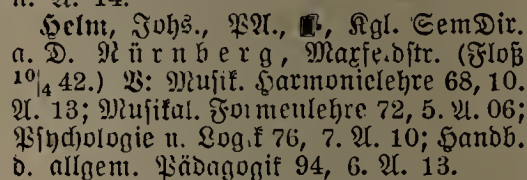 n. A. 14.
Helm, Johs., PA., Kgl. SemDir.
a. D. Nürnberg, Maxfe.dstr. (Floß
10|4 42.) V: Musik. Harmonielehre 68, 10.
A. 13; Musikal. Formenlehre 72, 5. A. 06;
Psychologie u. Log.k 76, 7. A. 10; Handb.
d. allgem. Pädagogik 94, 6. A. 13.